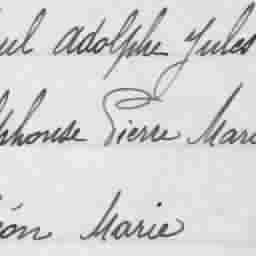 ul Adolphe Jules
lphonse Pierre Mar
éon Marie